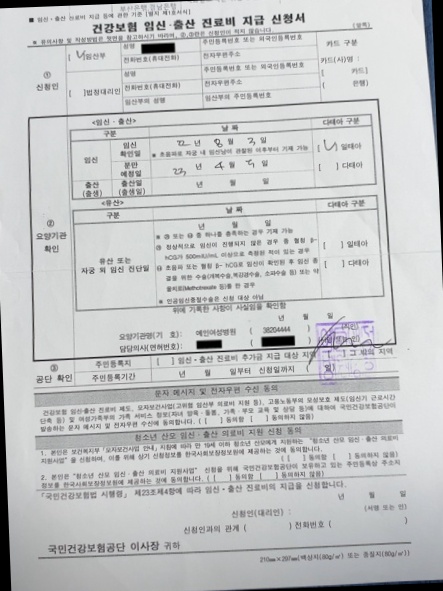 ■ 임신·출산 진료비 등에 관한 기준 [별지 제1호서식]
부산은행, 경남은행
건강보험 임신·출산 진료비 지급 신청서
※ 유의사항 및 작성방법은 뒷면을 참고하시기 바라며, ②,③란은 신청인이 적지 않습니다. (앞쪽)
① 신청인
[ √ ] 임산부
성명
주민등록번호 또는 외국인등록번호
카드 구분
전화번호(휴대전화)
전자우편주소
카드(사)명 :
[ 카드]
( 은행)
[ ]법정대리인
성명
주민등록번호 또는 외국인등록번호
전화번호(휴대전화)
전자우편주소
임산부의 성명
임산부의 주민등록번호
② 요양기관 확인
<임신·출산>
구분
날 짜
다태아 구분
임신
임신 확인일
22 년 8 월 3 일
※ 초음파로 자궁 내 임신낭이 관찰된 이후부터 기재 가능
분만 예정일
23 년 4 월 5 일
[ √ ] 일태아
[ ] 다태아
출산 (출생)
출산일 (출생일)
년 월 일
<유산>
구분
날 짜
다태아 구분
유산 또는 자궁 외 임신 진단일
년 월 일
※ ㉮ 또는 ㉯ 중 하나를 충족하는 경우 기재 가능
㉮ 정상적으로 임신이 진행되지 않은 경우 중 혈청 β-
hCG가 500mIU/mL 이상으로 측정된 적이 있는 경우
㉯ 초음파 또는 혈청 β-hCG로 임신이 확인된 후 임신 종
결을 위한 수술(개복수술,복강경수술, 소파수술 등) 또는 약
물치료(Methotrexate 등)를 한 경우
※ 인공임신중절수술은 신청 대상 아님
[ ] 일태아
[ ] 다태아
위에 기록한 사항이 사실임을 확인함
년 월 일
요양기관명(기 호): 메인여성병원 ( 38204444 ) (직인)
담당의사(면허번호): ( ) (서명 또는 인)
③ 공단 확인
주민등록지
[ ] 임신·출산 진료비 추가금 지급 대상 지역 [ ] 그 외의 지역
주민등록기간
년 월 일부터 신청일까지 ( 일)
문자 메시지 및 전자우편 수신 동의
건강보험 임신·출산 진료비 제도, 모자보건사업(고위험 임산부 의료비 지원 등), 고용노동부의 모성보호 제도(임신기 근로시간
단축 등) 및 여성가족부의 가족 서비스 정보(자녀 양육·돌봄, 가족·부모 교육 및 상담 등)에 대하여 국민건강보험공단이
발송하는 문자 메시지 및 전자우편 수신에 동의합니다. ([ ] 동의함 [ ] 동의하지 않음)
청소년 산모 임신·출산 의료비 지원 신청 동의
1. 본인은 보건복지부 「모자보건사업 안내」 지침에 따라 만 19세 이하 청소년 산모에게 지원하는 "청소년 산모 임신·출산 의료비
지원사업" 을 신청하며, 이를 위해 상기 신청정보를 한국사회보장정보원에 제공하는 것에 동의합니다.
([ ] 동의함 [ ] 동의하지 않음)
2. 본인은 "청소년 산모 임신·출산 의료비 지원사업" 신청을 위해 국민건강보험공단이 보유하고 있는 주민등록상 주소지
정보를 한국사회보장정보원에 제공하는 것에 동의합니다. ([ ] 동의함 [ ] 동의하지 않음)
「국민건강보험법 시행령」 제23조제4항에 따라 임신·출산 진료비의 지급을 신청합니다.
년 월 일
신청인(대리인) : (서명 또는 인)
신청인과의 관계 ( ) 전화번호 ( )
국민건강보험공단 이사장 귀하
210㎜×297㎜(백상지(80g/㎡) 또는 중질지(80g/㎡))